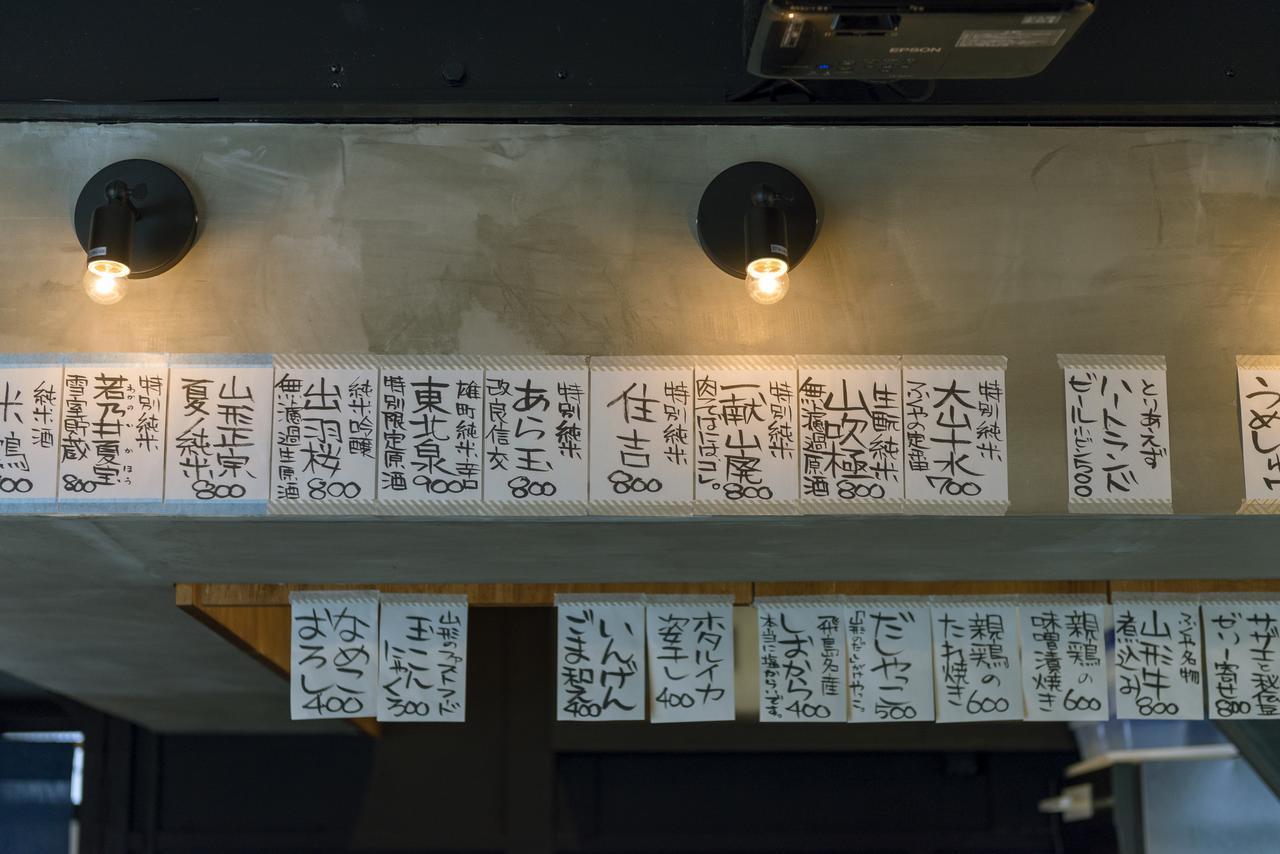 EPSON
うめしゅ
とりあえず
ハートランド
ビール(ビン)500
特別純米
大山十水
700
定番
生酛純米
山吹極
無濾過原酒
800
特別純米
一献山廃
800
特別純米
住吉
800
特別純米
あら玉
改良信交
800
雄町純米辛口
東北泉
特別限定原酒
900
純米吟醸
出羽桜
無濾過生原酒
800
山形正宗
夏ノ純米
800
特別純米
わかのいかほう
若乃井夏宝
雪室貯蔵
800
純米酒
米鶴
ゼリー寄せ
800
名物
山形牛
煮込み
800
親鶏の
味噌漬焼き
600
親鶏の
たれ焼き
600
だしやっこ
500
飛島名産
しおから
本当に塩からいです。
400
ホタルイカ
姿干し
400
いんげん
ごま和え
400
山形のソウルフード
玉こん
にゃく
300
なめこ
おろし
400